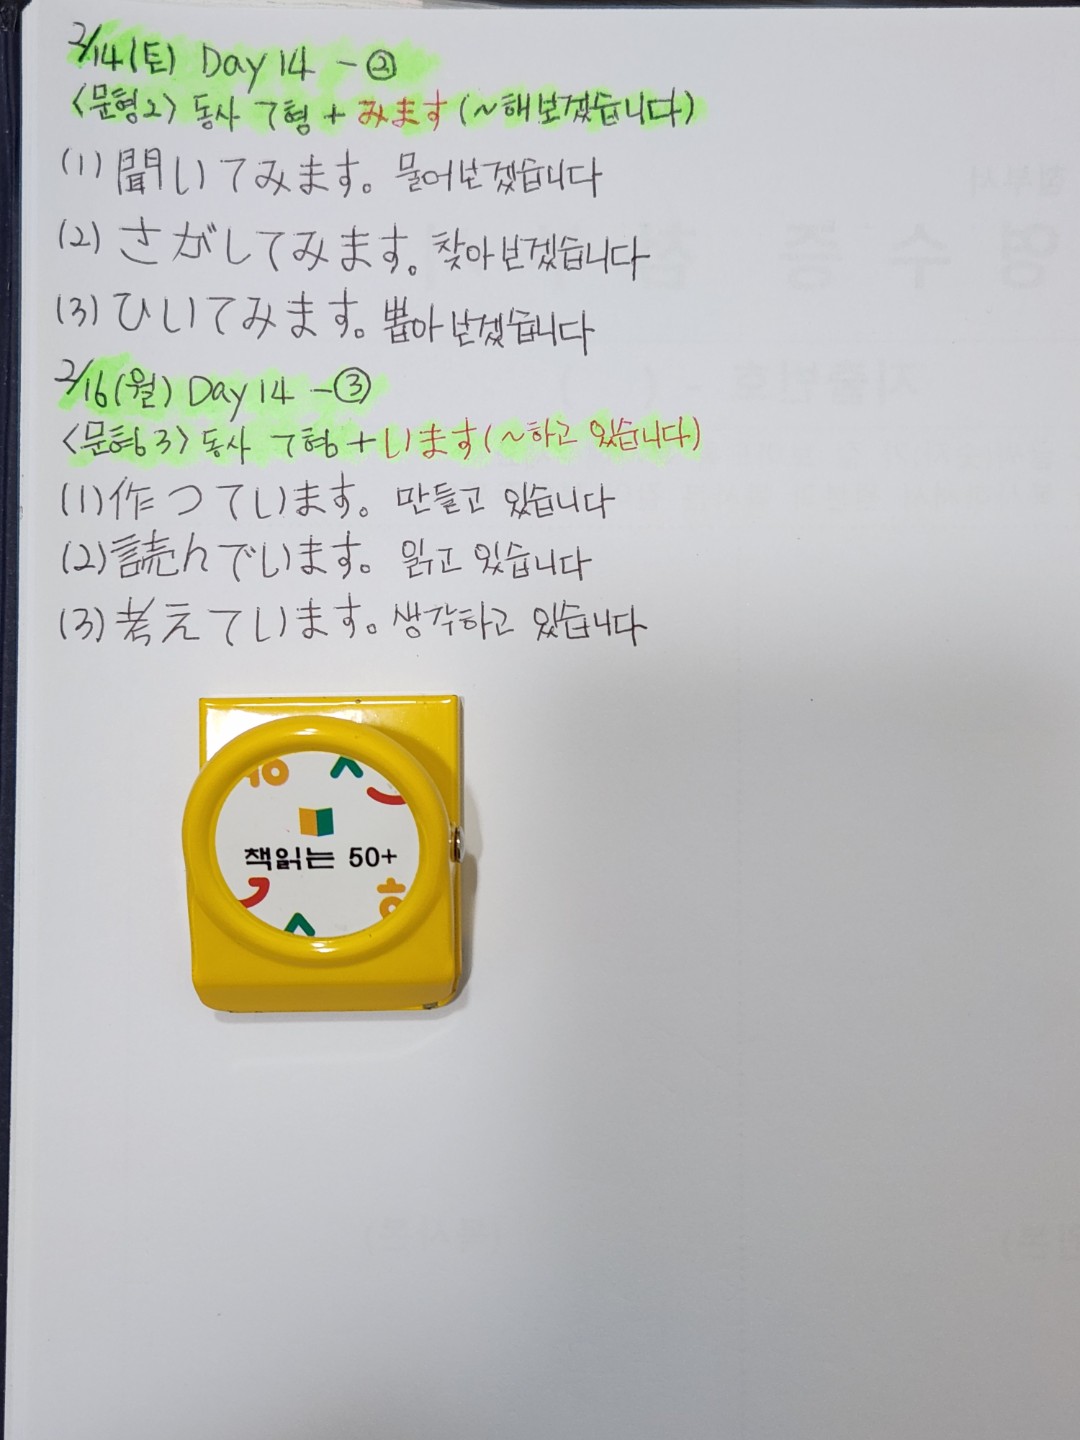 2/14(토) Day 14 - ②
<문형2> 동사 て형 + みます (~해 보겠습니다)
(1) 聞いてみます。 물어보겠습니다
(2) さがしてみます。 찾아 보겠습니다
(3) ひいてみます。 뽑아 보겠습니다
2/16(월) Day 14 - ③
<문형3> 동사 て형 + います (~하고 있습니다)
(1) 作っています。 만들고 있습니다
(2) 読んでいます。 읽고 있습니다
(3) 考えています。 생각하고 있습니다
책읽는 50+